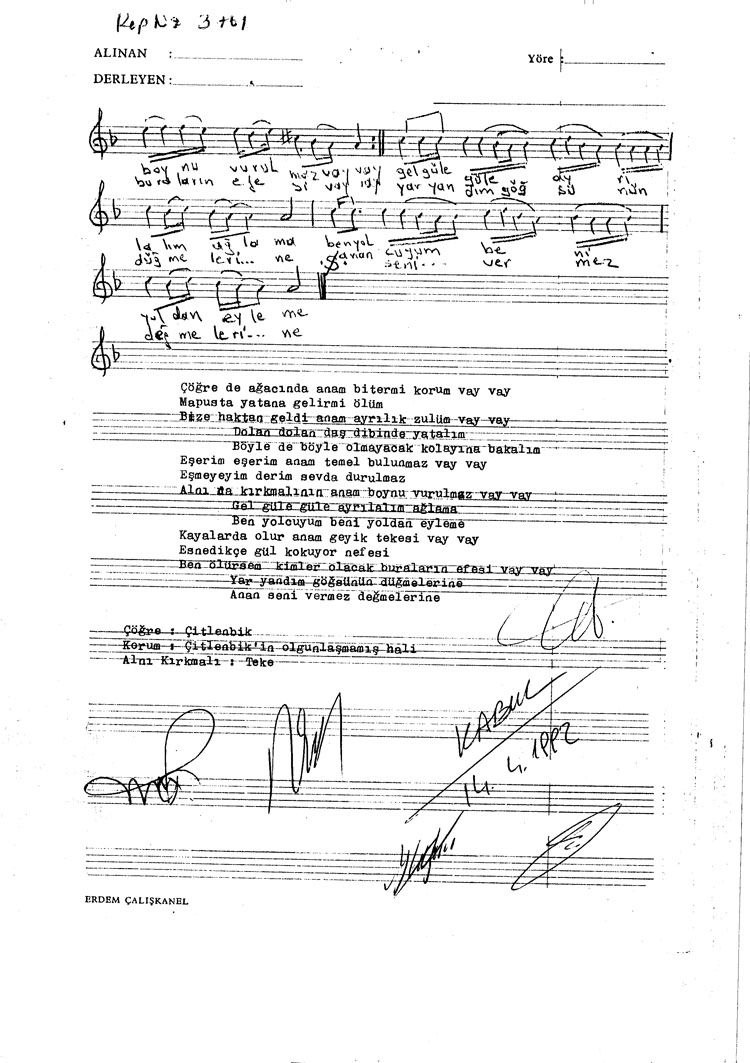 Rep No 3761
ALINAN :
Yöre :
DERLEYEN :
boy nu vurul maz vay vay gel güle güle ay rı
bura ların efe si vay vay yar yan dım göğ sü nün
la lım ağ la ma ben yol cuyum be ni
düğ me leri... ne anan seni... ver mez
yol dan ey le me
değ me leri... ne
Çöğre de ağacında anam bitermi korum vay vay
Mapusta yatana gelirmi ölüm
Bize haktan geldi anam ayrılık zulüm vay vay
Dolan dolan daş dibinde yatalım
Böyle de böyle olmayacak kolayına bakalım
Eşerim eşerim anam temel bulunmaz vay vay
Eşmeyeyim derim sevda durulmaz
Alnı da kırkmalının anam boynu vurulmaz vay vay
Gel güle güle ayrılalım ağlama
Ben yolcuyum beni yoldan eyleme
Kayalarda olur anam geyik tekesi vay vay
Esnedikçe gül kokuyor nefesi
Ben ölürsem kimler olacak buraların efesi vay vay
Yar yandım göğsünün düğmelerine
Anan seni vermez değmelerine
Çöğre : Çitlenbik
Korum : Çitlenbik'in olgunlaşmamış hali
Alnı Kırkmalı : Teke
KABUL
14.4.1992
ERDEM ÇALIŞKANEL